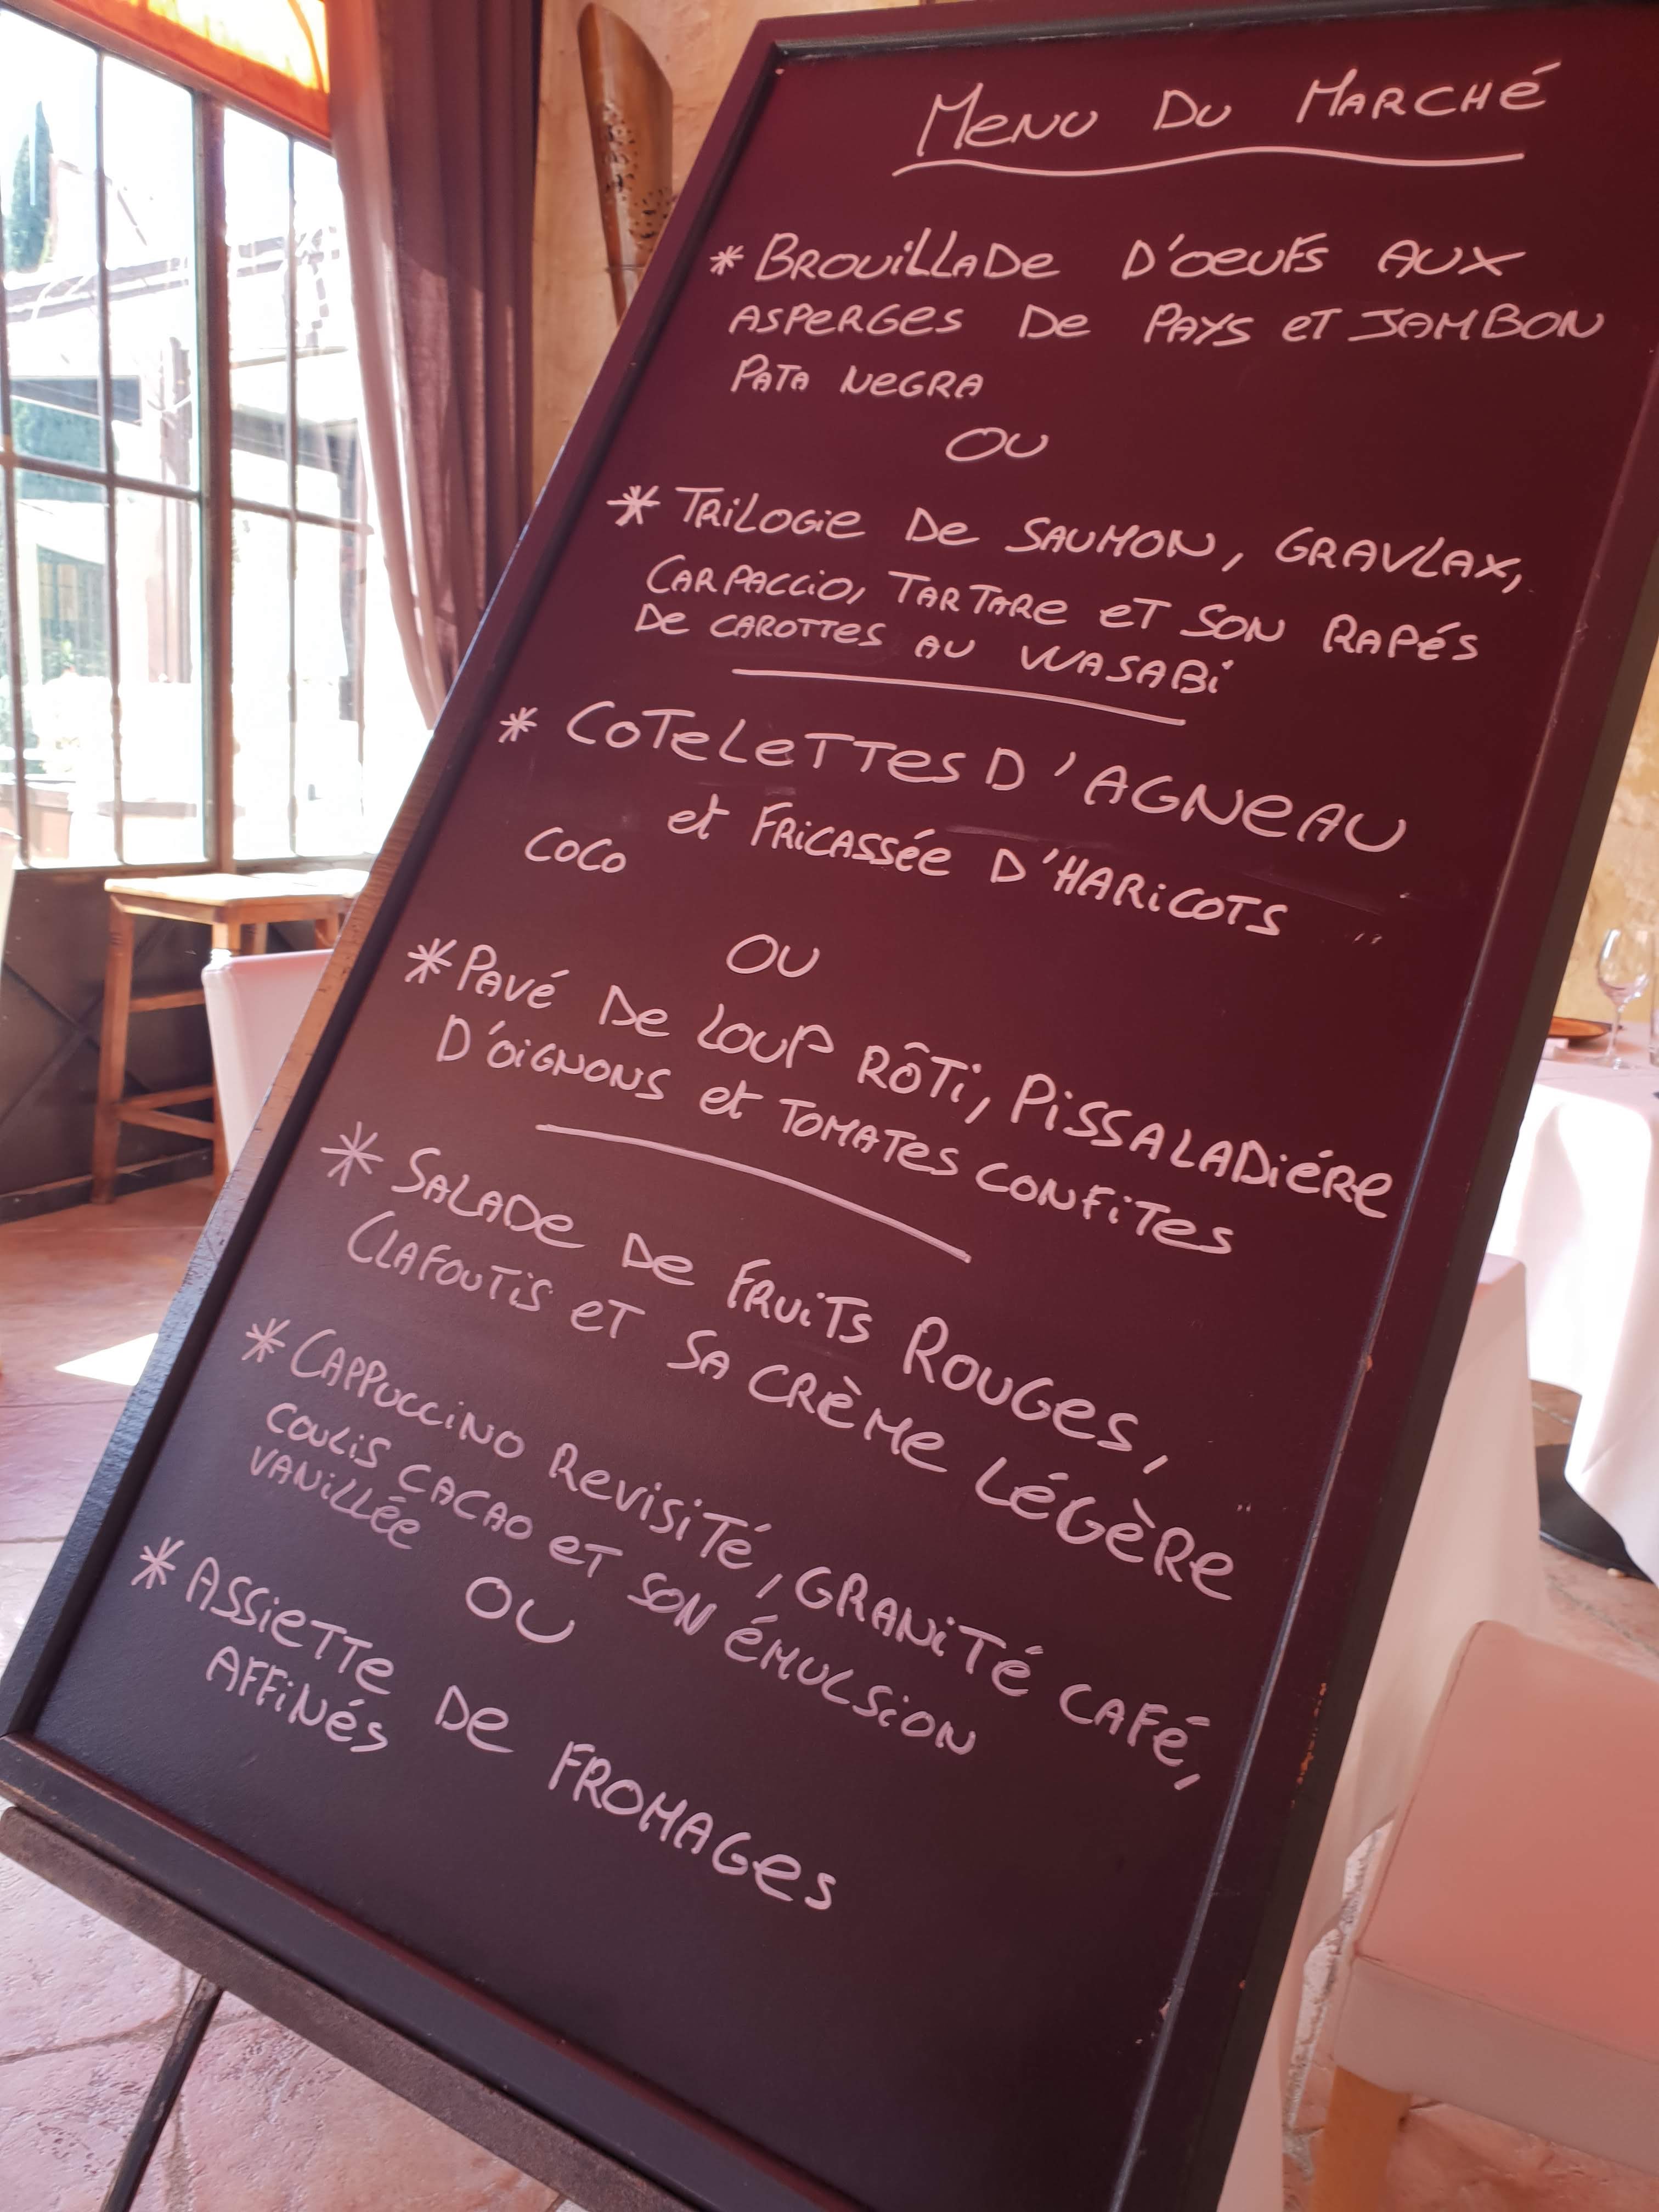 MENU DU MARCHÉ
* BROUILLADE D'OEUFS AUX
ASPERGES DE PAYS ET JAMBON
PATA NEGRA
OU
* TRILOGIE DE SAUMON, GRAVLAX,
CARPACCIO, TARTARE ET SON RAPÉS
DE CAROTTES AU WASABI
* COTELETTES D'AGNEAU
et FRICASSÉE D'HARICOTS
COCO
OU
* PAVÉ DE LOUP RÔTI, PISSALADIÉRE
D'OIGNONS et TOMATES CONFITES
* SALADE DE FRUITS ROUGES,
CLAFOUTIS ET SA CRÈME LÉGÈRE
* CAPPUCCINO REVISITÉ, GRANITÉ CAFÉ,
COULIS CACAO ET SON ÉMULSION
VANILLÉE
OU
* ASSIETTE DE FROMAGES
AFFINÉS